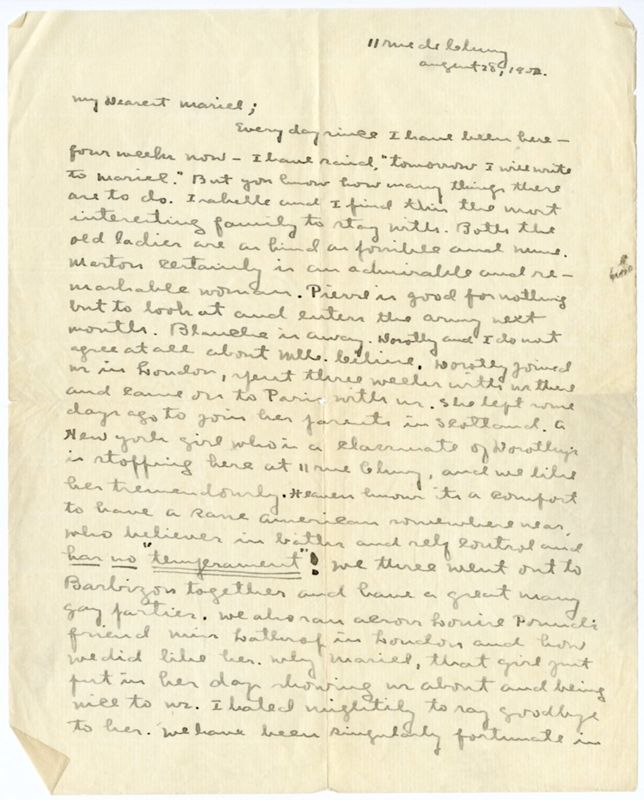 11 rue de Cluny
August 28, 1902.
My Dearest Mariel;
Every day since I have been here –
four weeks now – I have said, "tomorrow I will write
to Mariel." But you know how many things there
are to do. Isabelle and I find this the most
interesting family to stay with. Both the
old ladies are as kind as possible and mme.
Marton certainly is an admirable and re-
markable woman. Pierre is good for nothing
but to look at and enters the army next
month. Blanche is away. Dorothy and I do not
agree at all about Mlle. Celine. Dorothy joined
us in London, spent three weeks with us there
and came on to Paris with us. She left some
days ago to join her parents in Scotland. A
New York girl who is a classmate of Dorothy's
is stopping here at 11 rue Cluny, and we like
her tremendously. Heaven knows its a comfort
to have a sane American somewhere near,
who believes in baths and self control and
has no "temperament"! We three went out to
Barbizon together and have a great many
gay parties. We also ran across Louise Pound's
friend Miss Lathrop in London and how
we did like her. Why Mariel, that girl just
put in her days showing us about and being
nice to us. I hated mightily to say goodbye
to her. We have been singularly fortunate in